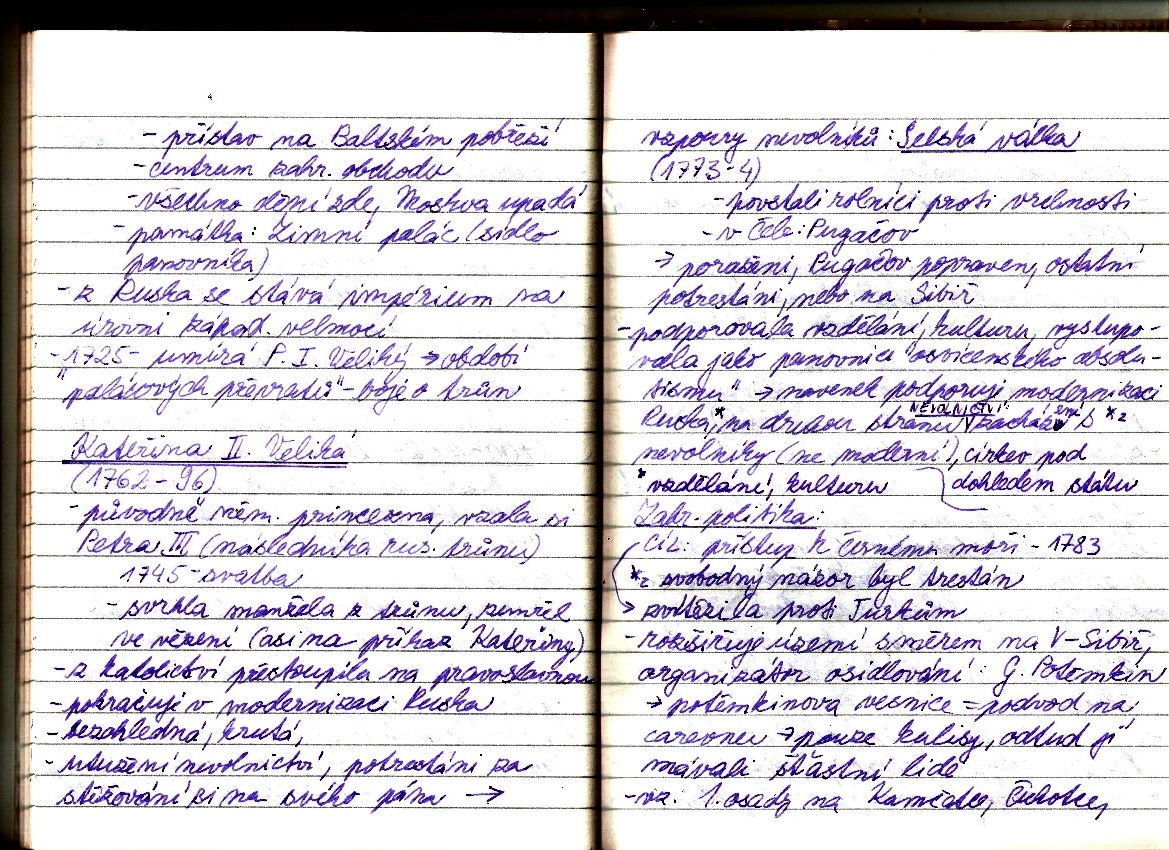 - přístav na Baltském pobřeží
- centrum zahr. obchodu
- všechno dění zde, Moskva upadá
- památka: Zimní palác (sídlo
panovníka)
- z Ruska se stává impérium na
úrovni západ. velmocí
- 1725 - umírá P. I. Veliký → období
"palácových převratů" - boje o trůn
Kateřina II. Veliká
(1762 - 96)
- původně něm. princezna, vzala si
Petra III (následníka rus. trůnu)
1745 - svatba
- svrhla manžela z trůnu, zemřel
ve vězení (asi na příkaz Kateřiny)
- z katolictví přestoupila na pravoslavnou
- pokračuje v modernizaci Ruska
- bezohledná, krutá,
- utužení nevolnictví, potrestáni za
stěžování si na svého pána →
vzpoury nevolníků: Selská válka
(1773-4)
- povstali rolníci proti vrchnosti
- v čele: Pugačov
→ poraženi, Pugačov popraven, ostatní
potrestáni, nebo na Sibiř
- podporovala vzdělání, kulturu, vystupo-
vala jako panovnice "osvícenského absolu-
tismu" → navenek podporuje modernizaci
Ruska,* na druhou stranu NEVOLNICTVÍ: (zacházení s *2
nevolníky (ne moderní), církev pod
dohledem státu
* vzdělání, kulturu
Zahr. politika:
Cíl: přístup k Černému moři - 1783
*2 svobodný názor byl trestán
→ zvítězila proti Turkům
- rozšiřuje území směrem na V - Sibiř,
organizátor osidlování: G. Potěmkin
→ potěmkinova vesnice = podvod na
carevnu → pouze kulisy, odtud jí
mávali šťastní lidé
- vz. 1. osady na Kamčatce, Čukotce,